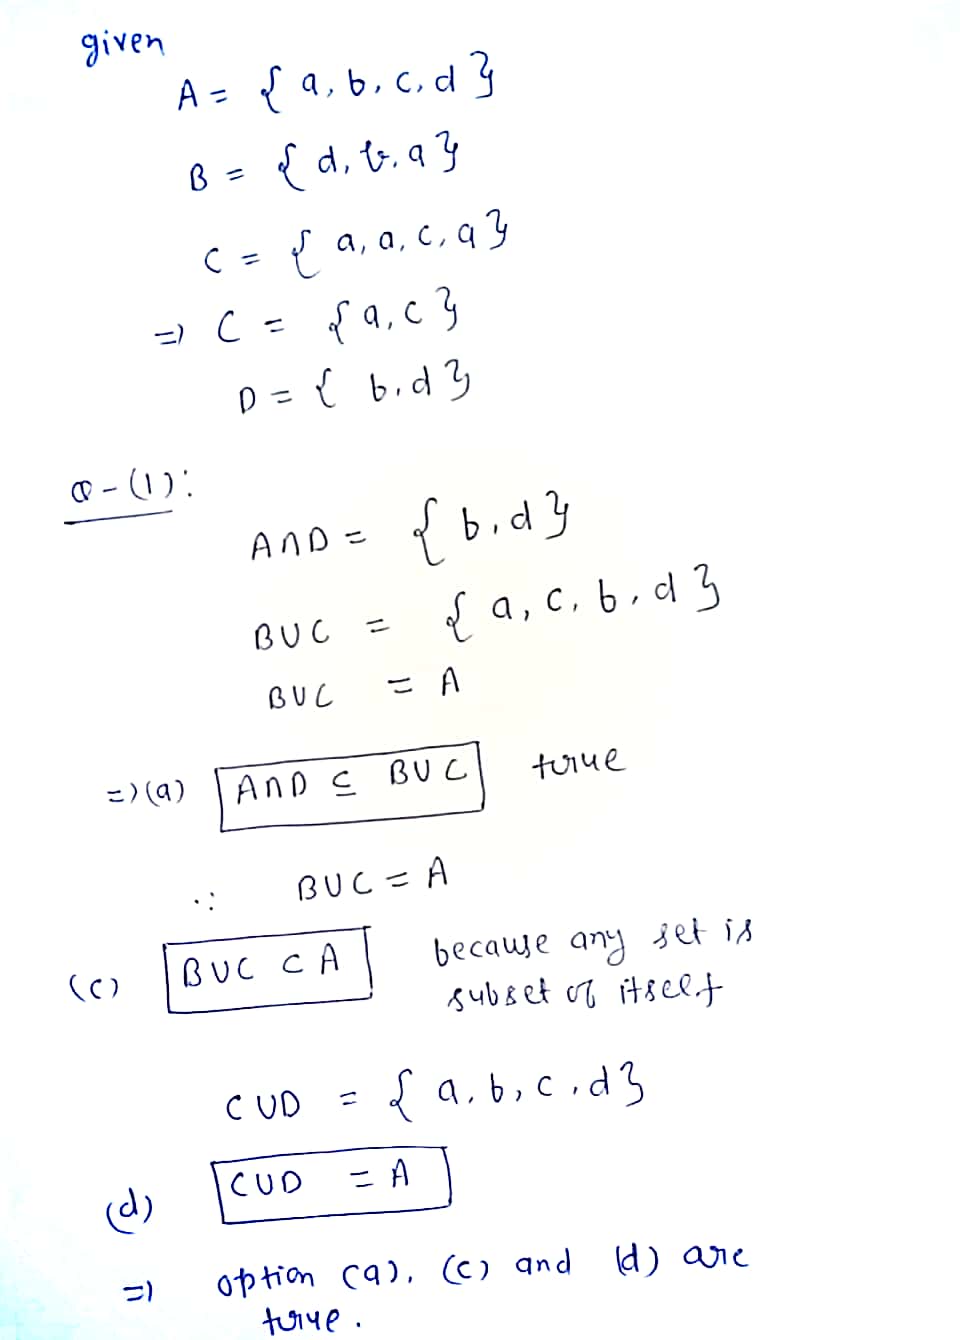 given
A = { a, b, c, d }
B = { d, b, a }
C = { a, a, c, a }
=) C = { a, c }
D = { b, d }
Q-(1):
A∩D = { b, d }
BUC = { a, c, b, d }
BUC = A
=)(a) A∩D ⊆ BUC true
∵ BUC = A
(c) BUC ⊂ A because any set is
subset of itself
CUD = { a, b, c, d }
(d) CUD = A
=) option (a), (c) and (d) are
true.